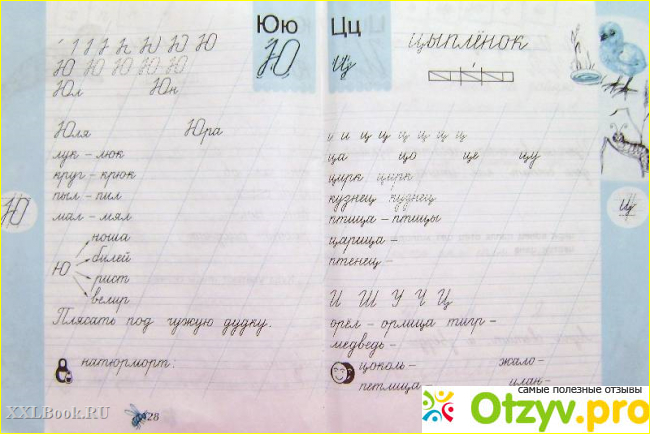 Юю
Ю
Ю Ю Ю Ю Ю
Юл Юн
Юля Юра
лук – люк
круг – крюк
пыл – пил
мал – мял
Ю
ноша
билей
рист
велир
Плясать под чужую дудку.
натюрморт.
28
Ю
XXLBook.RU
Цц
Ц ц
цыплёнок
и и ц ц ц ц ц ц
ца цо це цу
цирк цирк
кузнец кузнец
птица – птицы
царица –
птенец –
И Ш У Ч Ц
орёл – орлица тигр –
медведь –
цоколь – жало –
петлица – улан –
Ц
самые полезные отзывы
Otzyv.pro